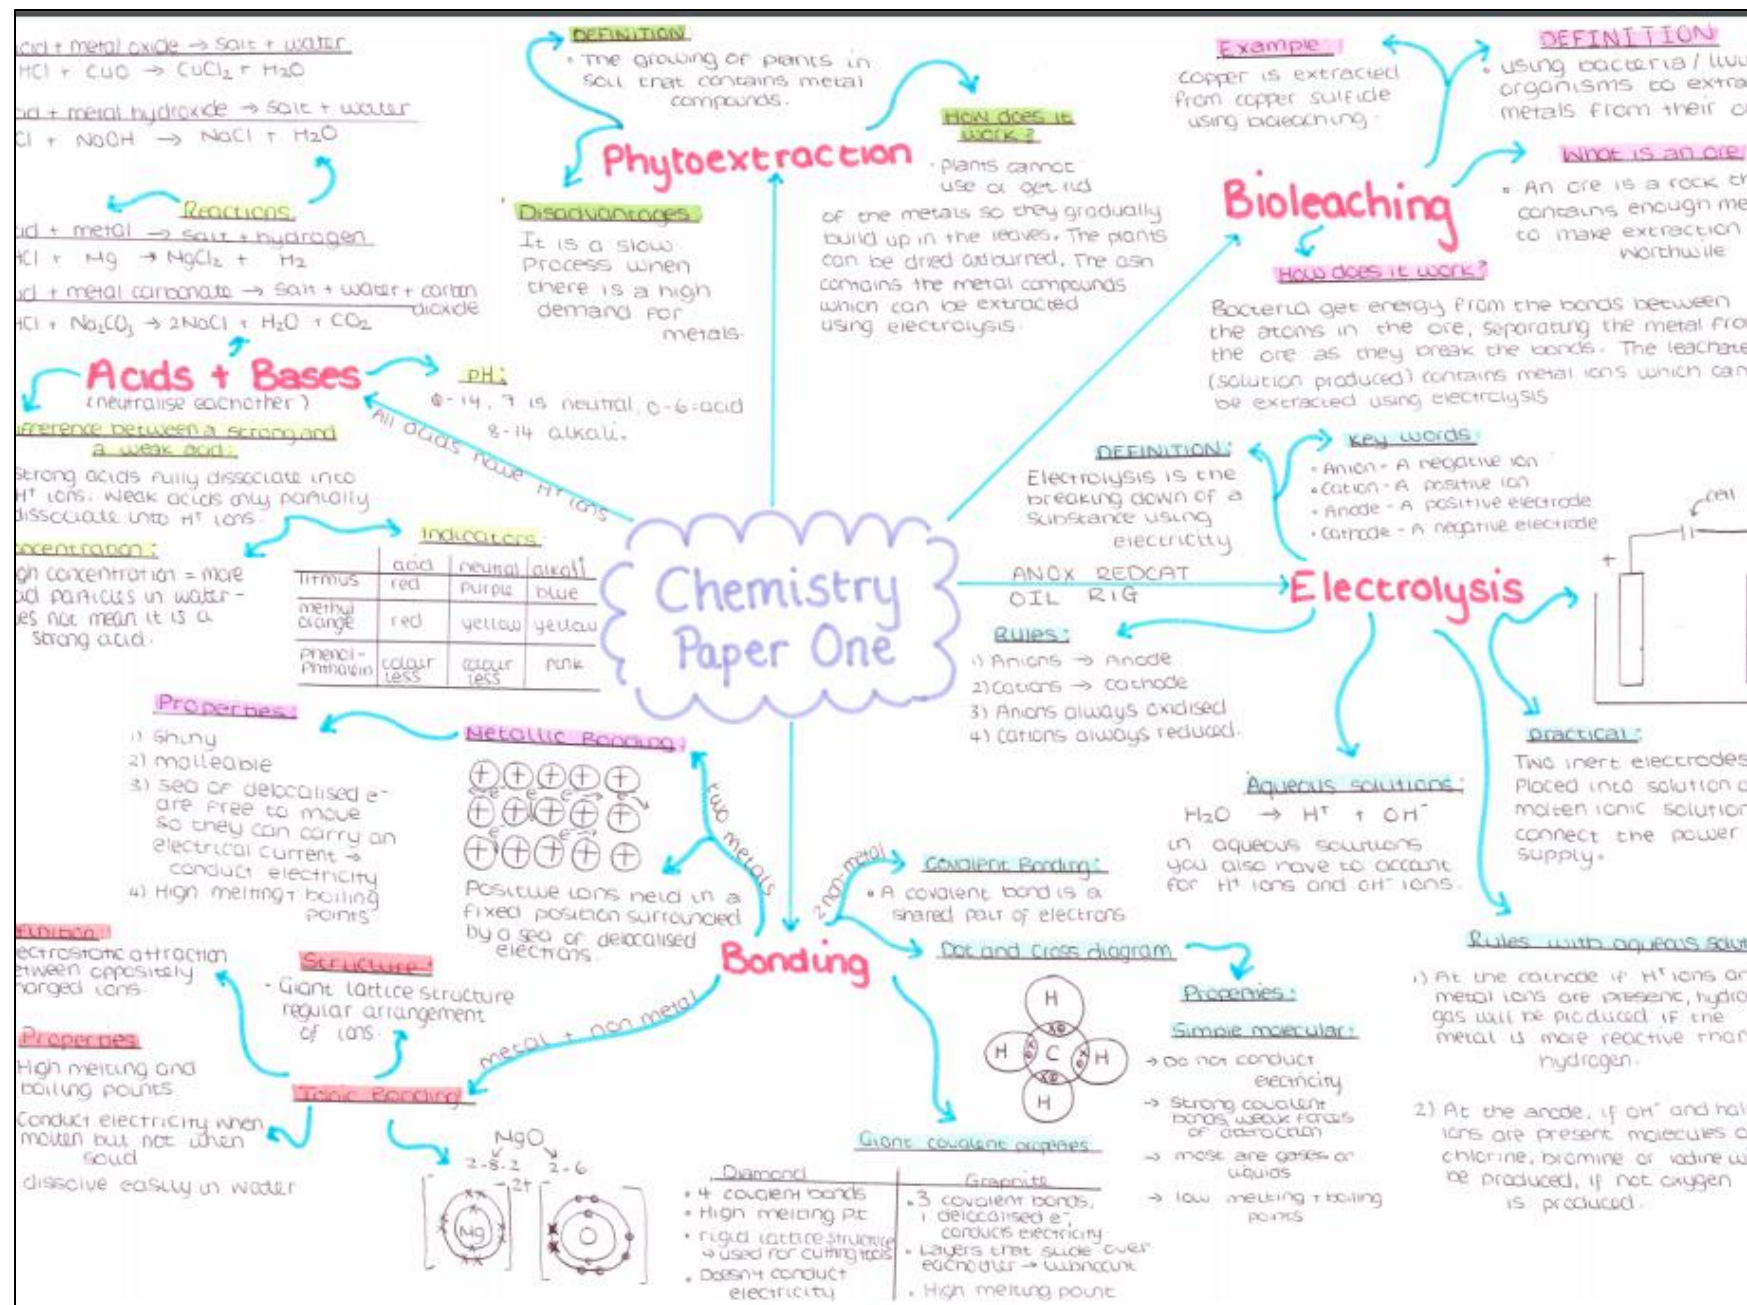 acid + metal oxide → salt + water
HCl + CuO → CuCl₂ + H₂O
acid + metal hydroxide → salt + water
Cl + NaOH → NaCl + H₂O
Reactions
acid + metal → salt + hydrogen
HCl + Mg → MgCl₂ + H₂
acid + metal carbonate → salt + water + carbon
dioxide
HCl + Na₂CO₃ → 2NaCl + H₂O + CO₂
Acids + Bases
(neutralise eachother)
pH:
0-14, 7 is neutral, 0-6=acid
8-14 alkali.
difference between a strong and
a weak acid:
strong acids fully dissociate into
H⁺ ions. Weak acids only partially
dissociate into H⁺ ions.
concentration:
high concentration = more
acid particles in water -
does not mean it is a
strong acid.
Indicators
acid neutral alkali
litmus red purple blue
methyl
orange red yellow yellow
phenol-
phthalein colour
less colour
less pink
All acids have H⁺ ions
DEFINITION
• The growing of plants in
soil that contains metal
compounds.
Phytoextraction
Disadvantages
It is a slow
process when
there is a high
demand for
metals.
How does it
work?
• plants cannot
use or get rid
of the metals so they gradually
build up in the leaves. The plants
can be dried and burned. The ash
contains the metal compounds
which can be extracted
using electrolysis.
Example:
copper is extracted
from copper sulfide
using bioleaching.
DEFINITION
• using bacteria /
organisms to
metals from their
Bioleaching
What is an ore
• An ore is a rock
contains enough
to make extraction
worthwile
How does it work?
Bacteria get energy from the bonds between
the atoms in the ore, separating the metal from
the ore as they break the bonds. The leachate
(solution produced) contains metal ions which can
be extracted using electrolysis
Chemistry
Paper One
DEFINITION:
Electrolysis is the
breaking down of a
substance using
electricity
Key words:
• Anion - A negative ion
• Cation - A positive ion
• Anode - A positive electrode
• Cathode - A negative electrode
ANOX REDCAT
OIL RIG
Electrolysis
cell
+
Rules:
1) Anions → Anode
2) Cations → cathode
3) Anions always oxidised
4) cations always reduced.
practical:
Two inert electrodes
Placed into solution
molten ionic solution
connect the power
supply.
Aqueous solutions:
H₂O → H⁺ + OH⁻
in aqueous solutions
you also have to account
for H⁺ ions and OH⁻ ions.
Rules with aqueous
1) At the cathode if H⁺ ions
metal ions are present,
gas will be produced if the
metal is more reactive than
hydrogen.
2) At the anode, if OH⁻ and
ions are present molecules
chlorine, bromine or iodine
be produced, if not oxygen
is produced.
Properties:
1) shiny
2) malleable
3) sea of delocalised e-
are free to move
so they can carry an
electrical current →
conduct electricity
4) High melting + boiling
points
Metallic Bonding:
Positive ions held in a
fixed position surrounded
by a sea of delocalised
electrons.
two metals
Bonding
2 non-metal
Covalent Bonding:
• A covalent bond is a
shared pair of electrons
Dot and cross diagram
H
H C H
H
Properties:
Simple molecular:
→ Do not conduct
electricity
→ Strong covalent
bonds, weak forces
of attraction
→ most are gases or
liquids
→ low melting + boiling
points
Giant covalent properties:
Diamond
• 4 covalent bonds
• High melting pt
• rigid lattice structure
↳ used for cutting tools
• Doesn't conduct
electricity
Graphite
• 3 covalent bonds,
1 delocalised e⁻,
conducts electricity
• Layers that slide over
eachother → lubricant
• High melting point
metal + non metal
Ionic Bonding
definition:
electrostatic attraction
between oppositely
charged ions.
Structure:
• Giant lattice structure
regular arrangement
of ions.
Properties
High melting and
boiling points
Conduct electricity when
molten but not when
solid
dissolve easily in water
MgO
2-8-2 2-6
Mg 2+
O 2-